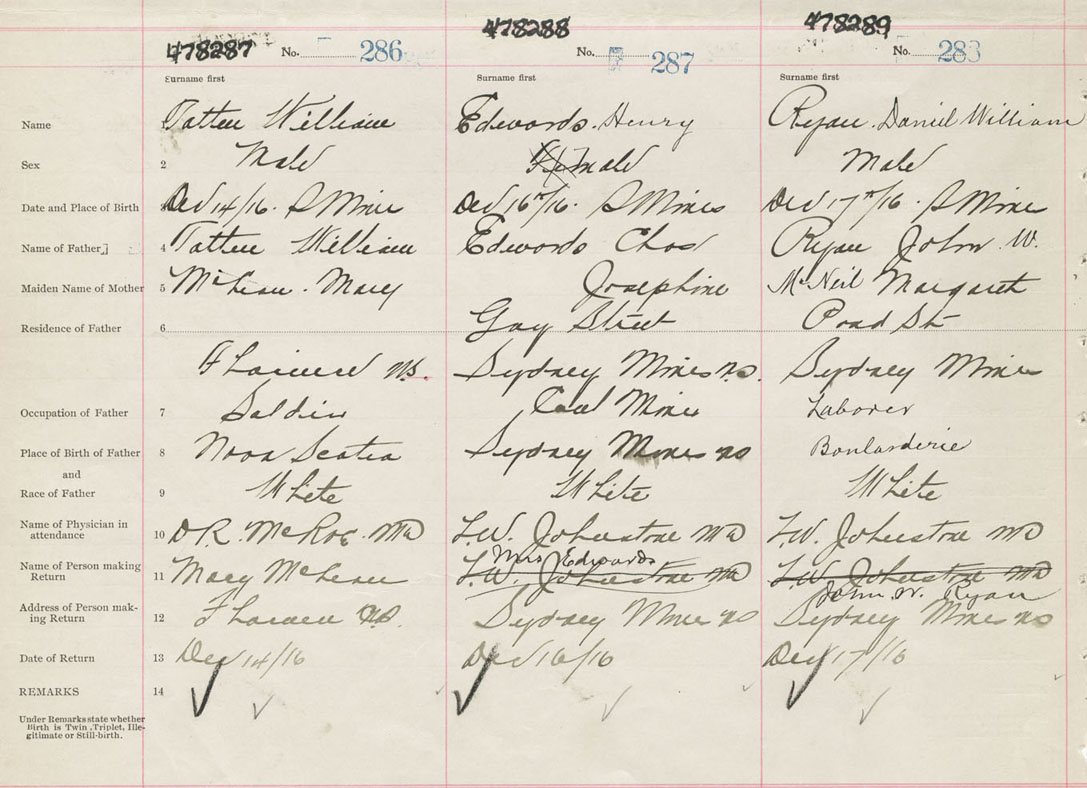 478287 478288 478289
No. 286 No. 287 No. 288
Surname first Surname first Surname first
Name 1 Tatten William Edwards Henry Ryan Daniel William
Sex 2 Male Female Male
Date and Place of Birth Dec 14/16. S Mines Dec 16th/16. S Mines Dec 17th/16. S Mines
Name of Father 4 Tatten William Edwards Chas Ryan John W.
Maiden Name of Mother 5 McLean Mary Josephine McNeil Margaret
Residence of Father 6 Gay Street Pond St
Florence N.S. Sydney Mines NS. Sydney Mines
Occupation of Father 7 Soldier Coal Miner Laborer
Place of Birth of Father 8 Nova Scotia Sydney Mines NS Boularderie
and
Race of Father 9 White White White
Name of Physician in
attendance 10 D.R. McRae. MD L.W. Johnstone MD L.W. Johnstone MD
Mrs Edwards
Name of Person making
Return 11 Mary McLean L.W. Johnstone MD L.W. Johnstone MD
John W. Ryan
Address of Person mak-
ing Return 12 Florence NS. Sydney Mines NS Sydney Mines NS
Date of Return 13 Dec 14/16 Dec 16/16 Dec 17/16
REMARKS 14
Under Remarks state whether
Birth is Twin, Triplet, Ille-
gitimate or Still-birth.